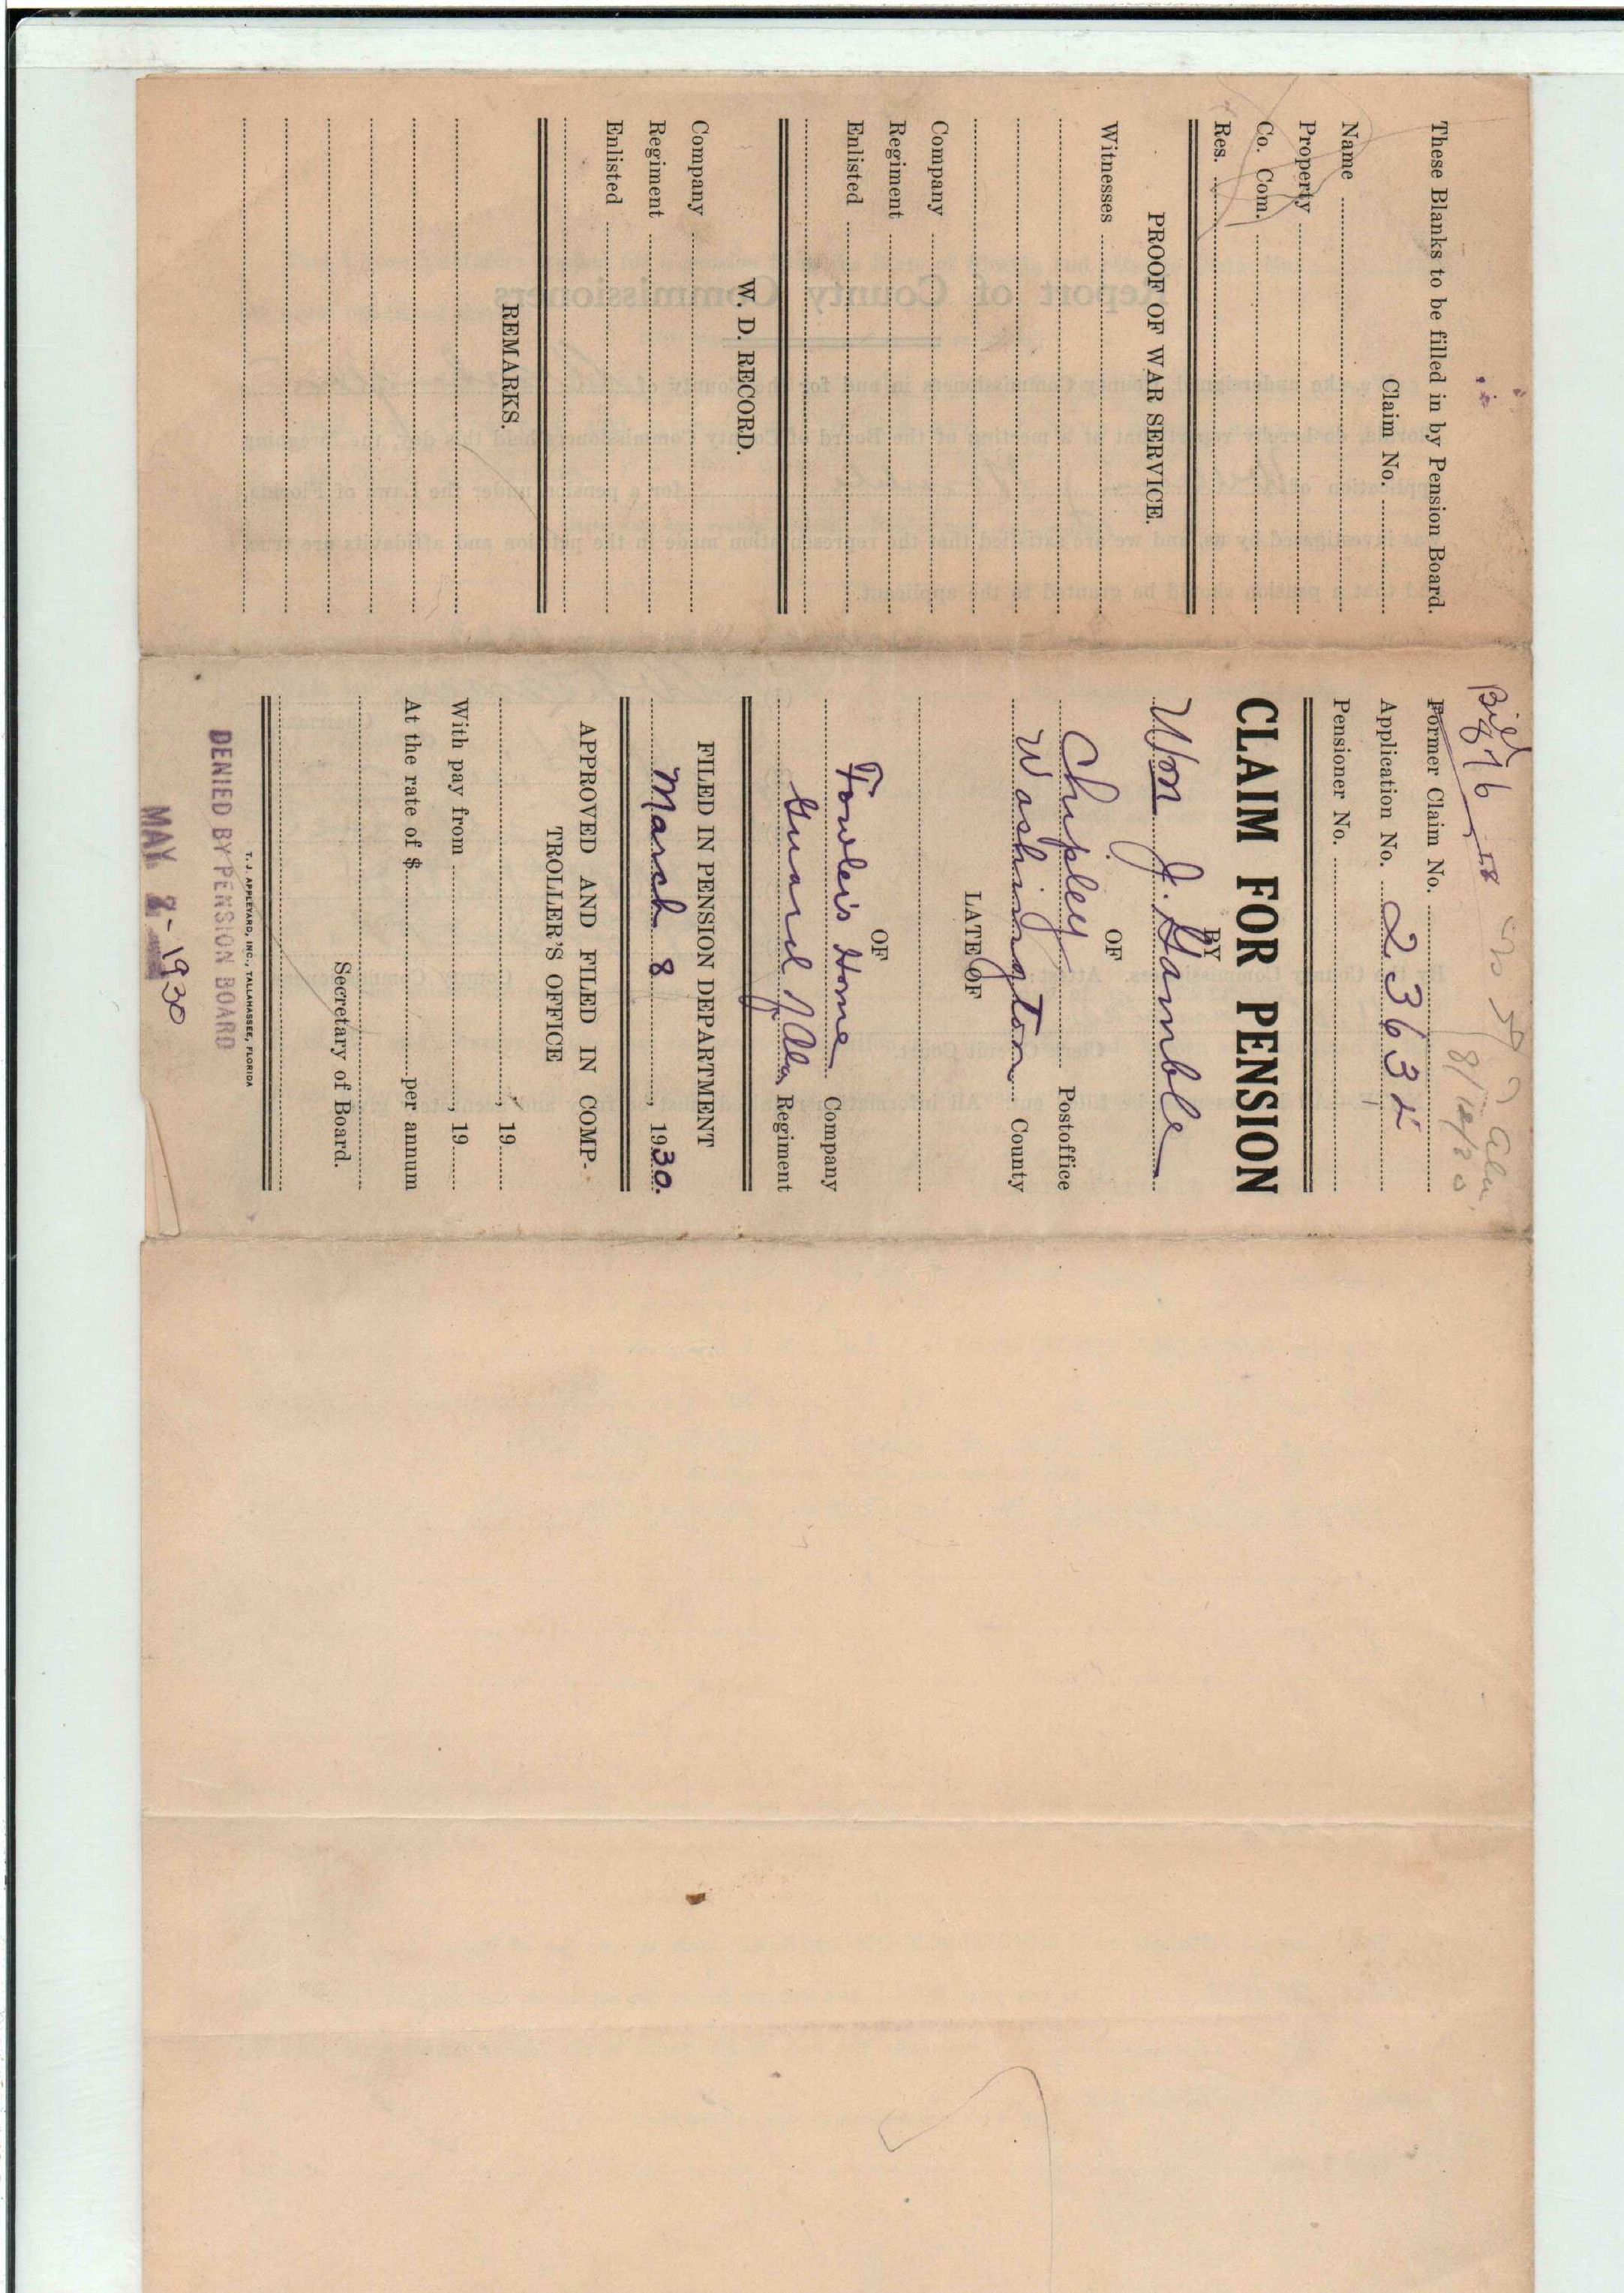 These Blanks to be filled in by Pension Board.
Claim No.
Name
Property
Co. Com.
Res.
PROOF OF WAR SERVICE.
Witnesses
Company
Regiment
Enlisted
W. D. RECORD.
Company
Regiment
Enlisted
REMARKS.
Former Claim No.
Application No. 23635
Pensioner No.
CLAIM FOR PENSION
BY
Wm J. Gamble
OF
Chipley Postoffice
Washington County
LATE OF
OF
Fowler's Home Company
Guard Ala Regiment
FILED IN PENSION DEPARTMENT
March 8, 1930.
APPROVED AND FILED IN COMP-
TROLLER'S OFFICE
, 19
With pay from , 19
At the rate of $ per annum
Secretary of Board.
T. J. APPLEYARD, INC., TALLAHASSEE, FLORIDA
DENIED BY PENSION BOARD
MAY 2-1930
Report of County Commissioners